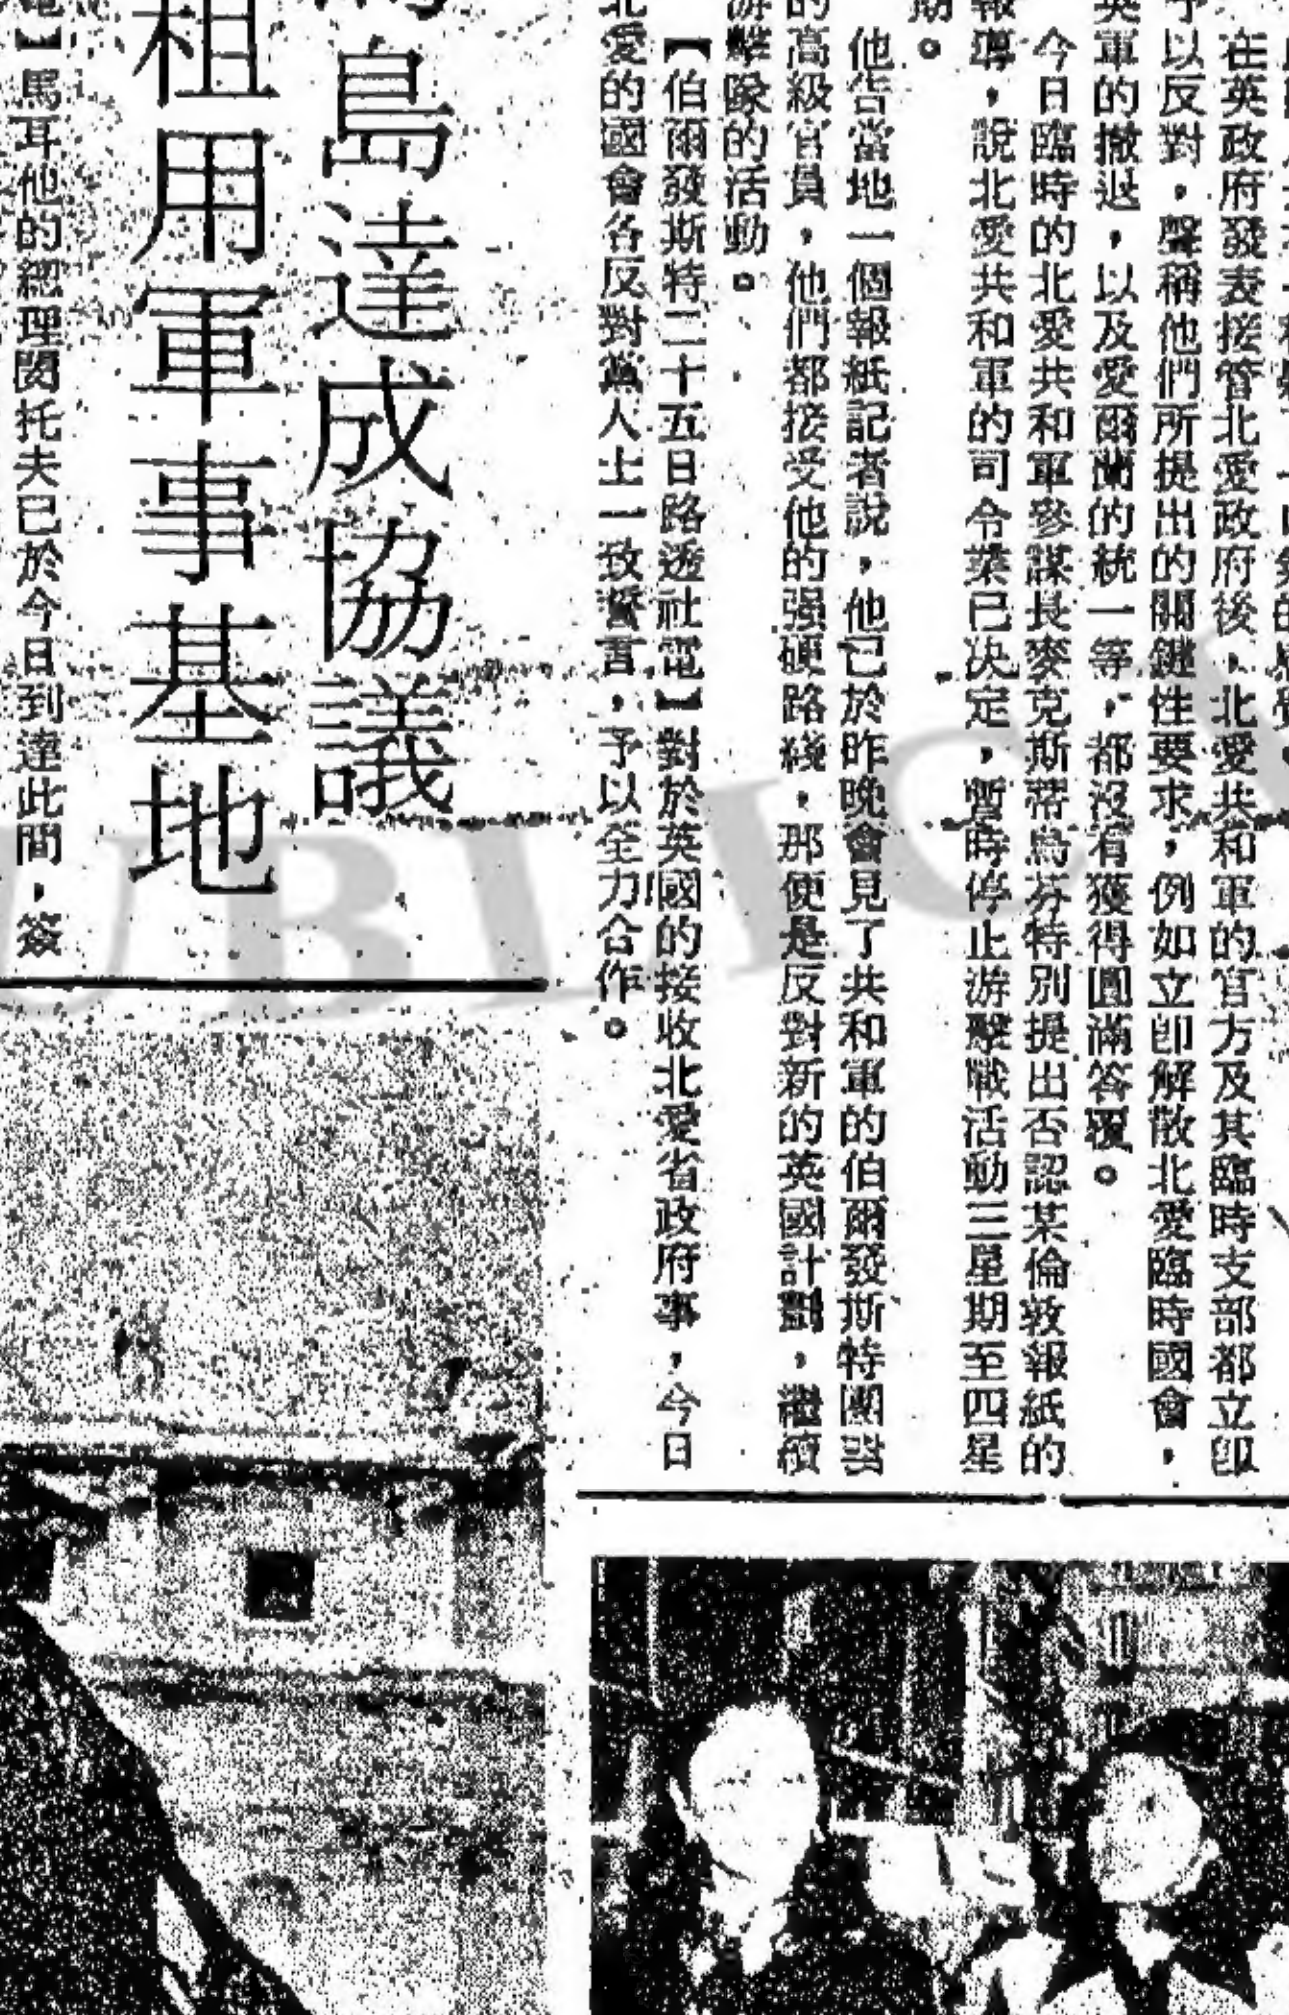 在英政府發表接管北愛政府後，北愛共和軍的官方及其臨時支部都立卽
予以反對，聲稱他們所提出的關鍵性要求，例如立卽解散北愛臨時國會，
英軍的撤退，以及愛爾蘭的統一等，都沒有獲得圓滿答覆。
今日臨時的北愛共和軍參謀長麥克斯蒂烏芬特別提出否認某倫敦報紙的
報導，說北愛共和軍的司令業已決定，暫時停止游擊戰活動三星期至四星
期。
他告當地一個報紙記者說，他已於昨晚會見了共和軍的伯爾發斯特團當
的高級官員，他們都接受他的强硬路綫，那便是反對新的英國計劃，繼續
游擊隊的活動。
【伯爾發斯特二十五日路透社電】對於英國的接收北愛省政府事，今日
北愛的國會各反對黨人士一致誓言，予以全力合作。
島達成協議
租用軍事基地
電】馬耳他的總理閔托夫已於今日到達此間，簽
UBLIC